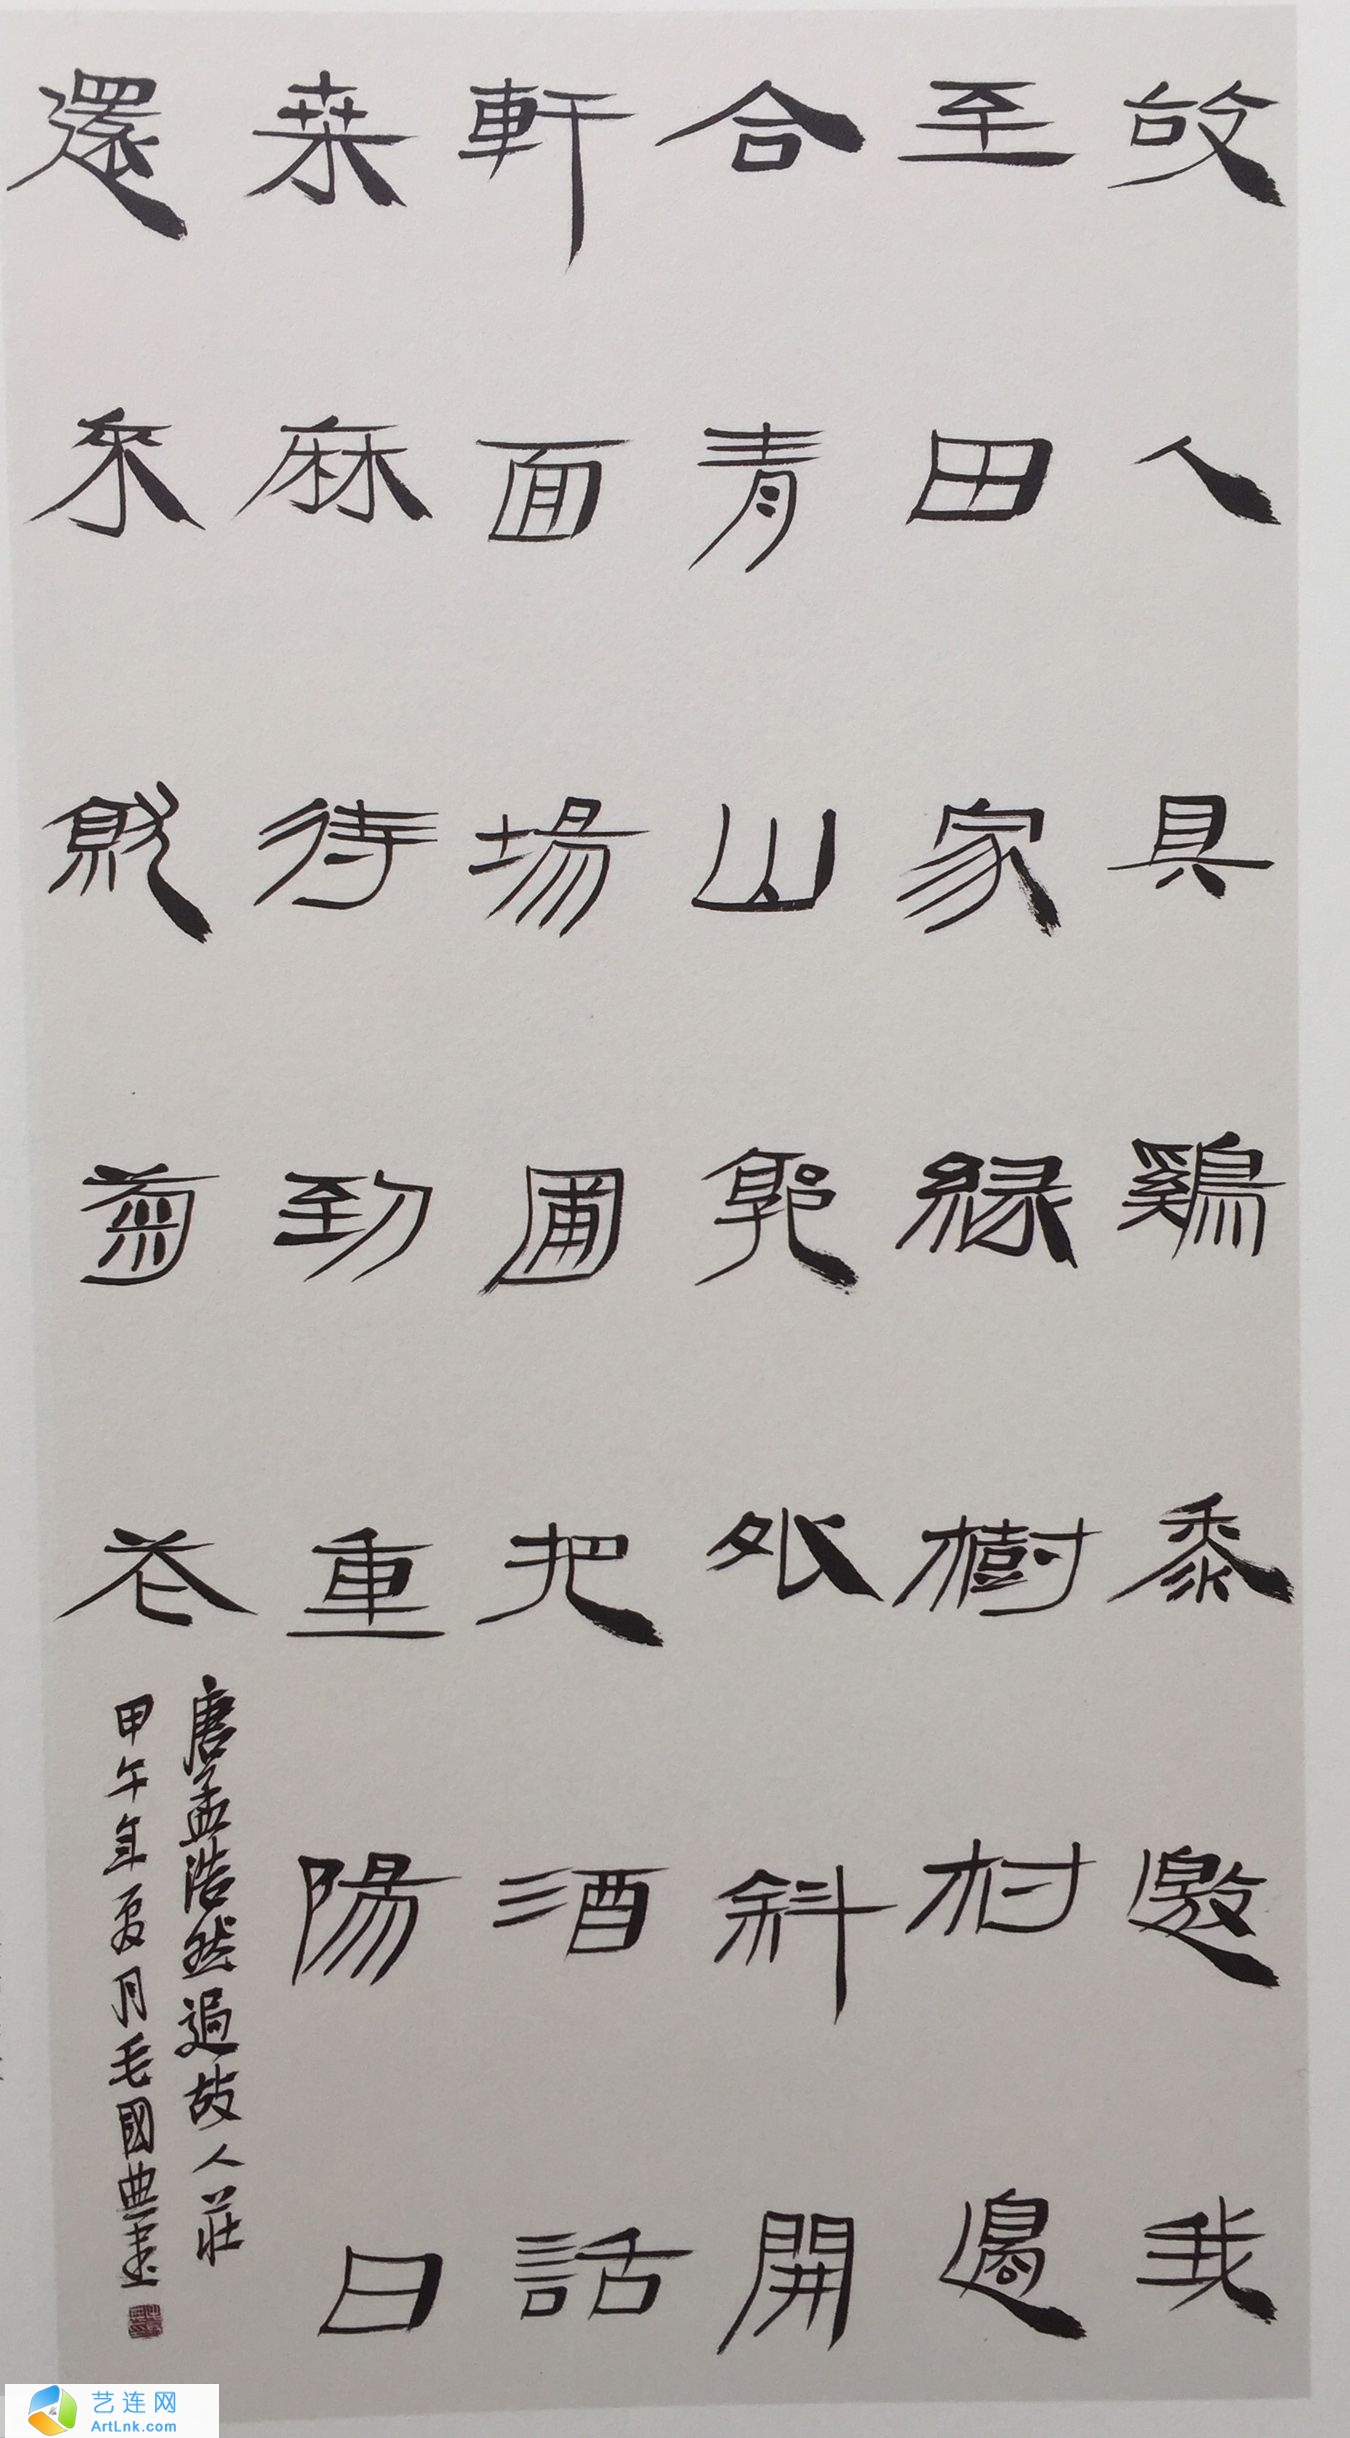 故人具鷄黍邀我
至田家緑樹村邊
合青山郭外斜開
軒面場圃把酒話
桒麻待到重陽日
還來就菊花
唐孟浩然過故人莊
甲午年夏月毛國典書
艺连网
ArtLnk.com